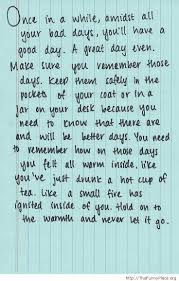 Once in a while, amidst all
your bad days, you'll have a
good day. A great day even.
Make sure you remember those
days. Keep them safely in the
pockets of your coat or in a
jar on your desk because you
need to know that there are
and will be better days. You need
to remember how on those days
you felt all warm inside, like
you've just drunk a hot cup of
tea. Like a small fire has
ignited inside of you. Hold on to
the warmth and never let it go.
http://TheFunnyPlace.org